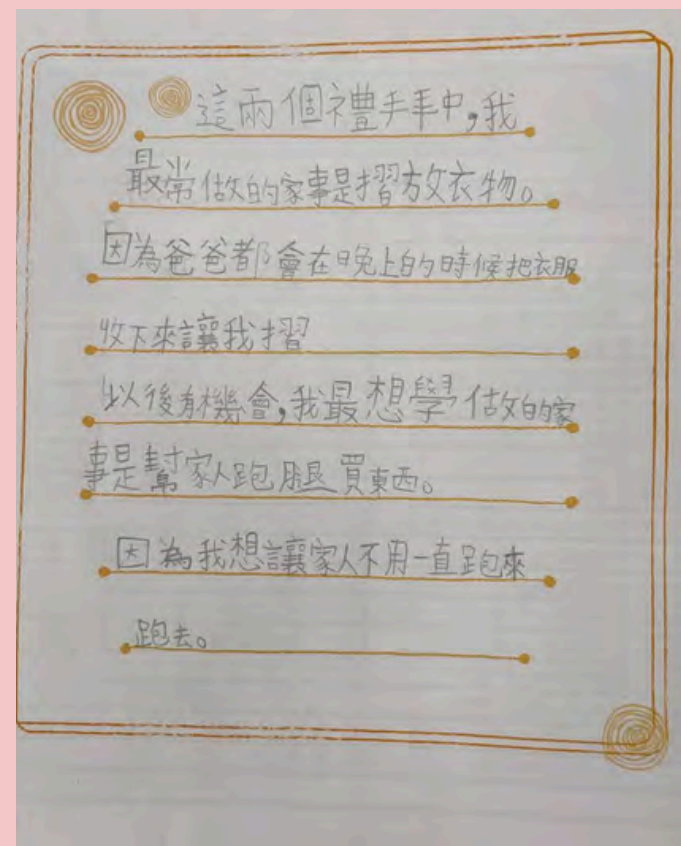 這兩個禮手年中,我
最常做的家事是摺放衣物。
因為爸爸都會在晚上的時候把衣服
收下來讓我摺
以後有機會,我最想學做的家
事是幫家人跑腿買東西。
因為我想讓家人不用一直跑來
跑去。